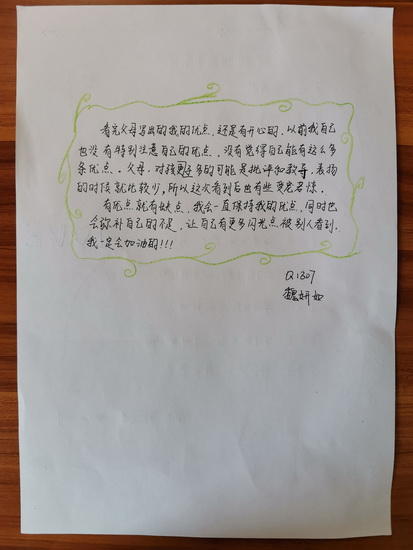 看完父母写出的我的优点，还是有开心的。以前我自己
也没有特别注意自己的优点，没有觉得自己能有这么多
条优点。父母，对孩子更多的可能是批评和教导，表扬
的时候就比较少，所以这次看到后也有些受宠若惊。
有优点就有缺点，我会一直保持我的优点，同时也
会弥补自己的不足，让自己有更多闪光点被别人看到。
我一定会加油的!!!
Q1307
魏妍如